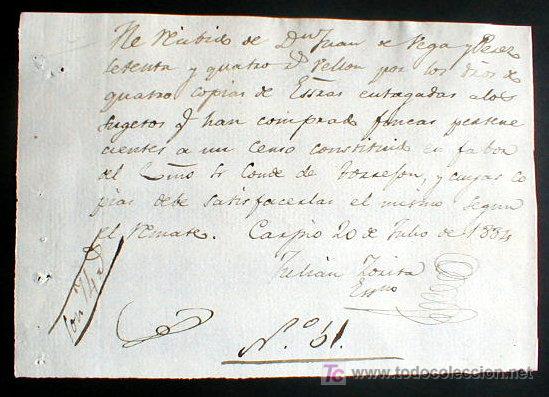 He Recibido de Dn Juan de Vega y Perez
setenta y quatro rs vellon por los dros de
quatro copias de Essras entregadas a los
sugetos q han comprado fincas pertene
cientes a un censo constituido en fabor
del Exmo Sr Conde de Torrejon, y cuyas co
pias debe satisfacerlas el mismo segun
el remate. Carpio 20 de Julio de 1834
Julián Zorita
Essno
Son 74 rs
N.o 61.
todocoleccion
www.todocoleccion.net